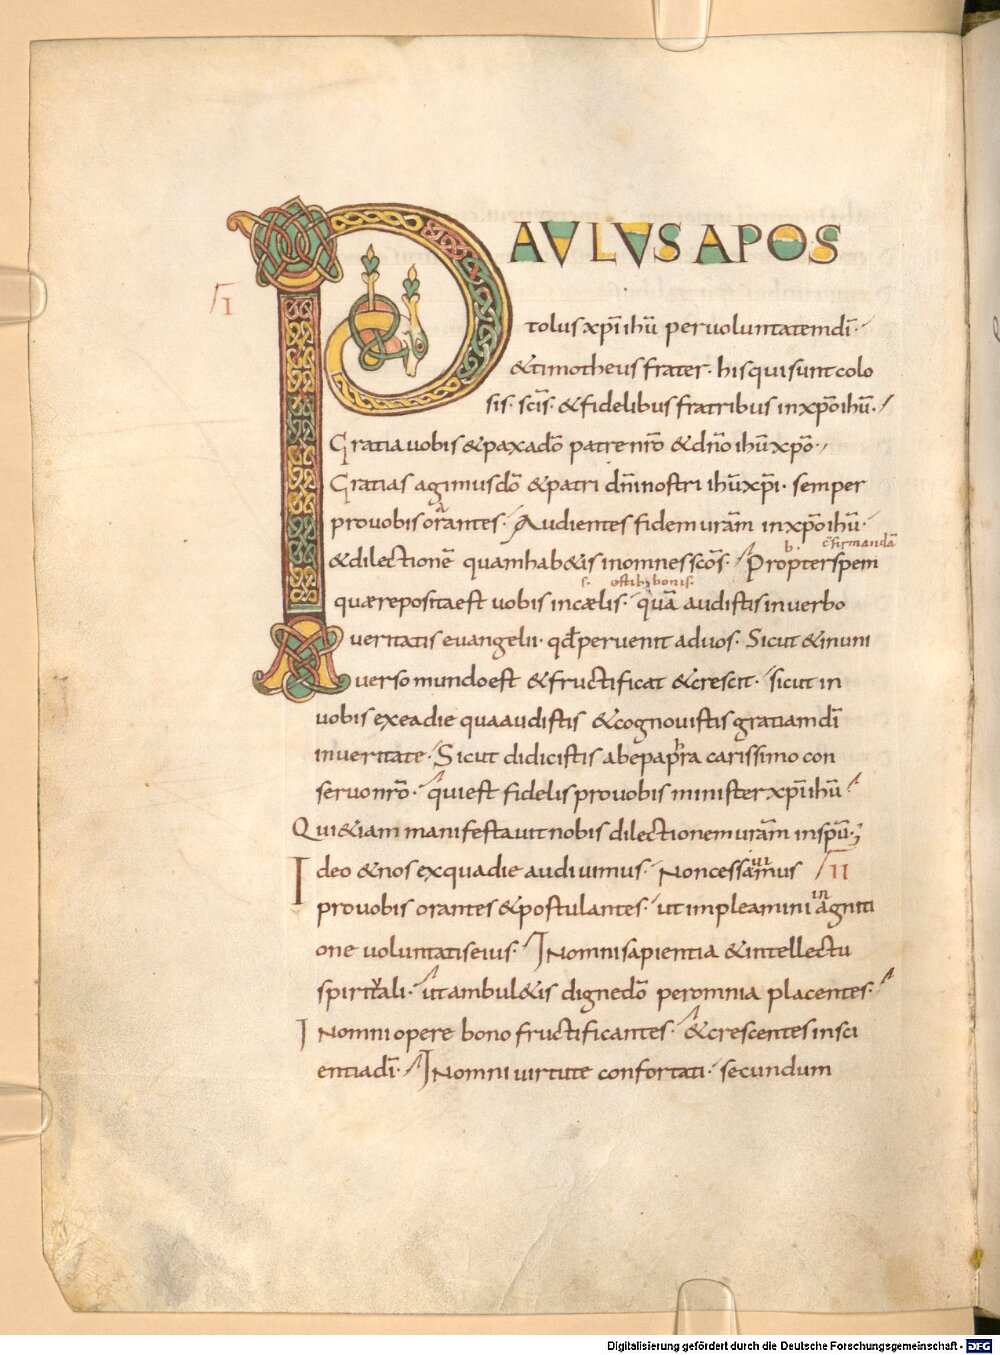 PAULUS APOS
I
tolus xpī ihū per voluntatem dī·
& timotheus frater· his qui sunt colo
sis· scīs· & fidelibus fratribus in xpō ihū·
Gratia uobis & pax a dō patre nrō & dnō ihū xpō·
Gratias agimus dō & patri dnī nostri ihū xpī· semper
pro uobis orantes· Audientes fidem urām in xpō ihū·
b· cfirmandā
& dilectionē quam hab&is in omnes scōs· Propter spem
s· ostibz bonis·
quæ reposita est uobis in cælis· quā audistis in uerbo
ueritatis euangelii· qđ peruenit ad uos· Sicut & in uni
uerso mundo est & fructificat & crescit· sicut in
uobis ex ea die qua audistis & cognouistis gratiam dī
in ueritate· Sicut didicistis ab epaphra carissimo con
seruo nrō· qui est fidelis pro uobis minister xpī ihū
Qui &iam manifestauit nobis dilectionem urām in spū·
Ideo & nos ex qua die audiuimus· Non cessamus II
ui
in
pro uobis orantes & postulantes· ut impleamini agniti
one uoluntatis eius· In omni sapientia & intellectu
spiritali· ut ambul&is digne dō per omnia placentes·
In omni opere bono fructificantes· & crescentes in sci
entia dī· In omni uirtute confortati· secundum
Digitalisierung gefördert durch die Deutsche Forschungsgemeinschaft - DFG